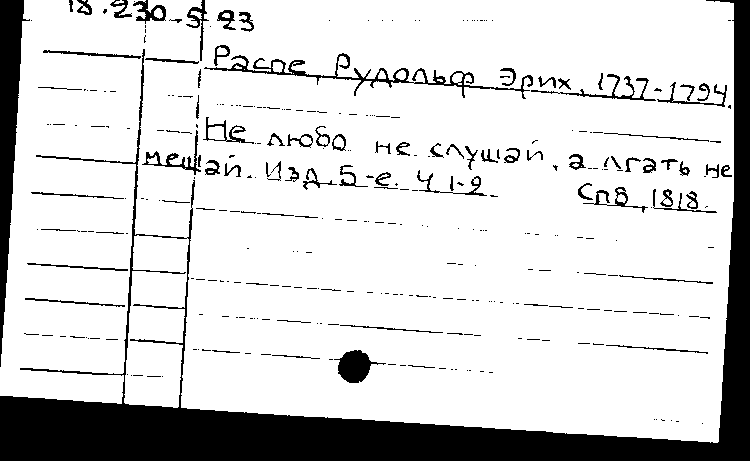 18.230.5.23
Распе, Рудольф Эрих, 1737-1794.
Не любо не слушай, а лгать не
мешай. Изд. 5-е. Ч 1-2 Спб, 1818.